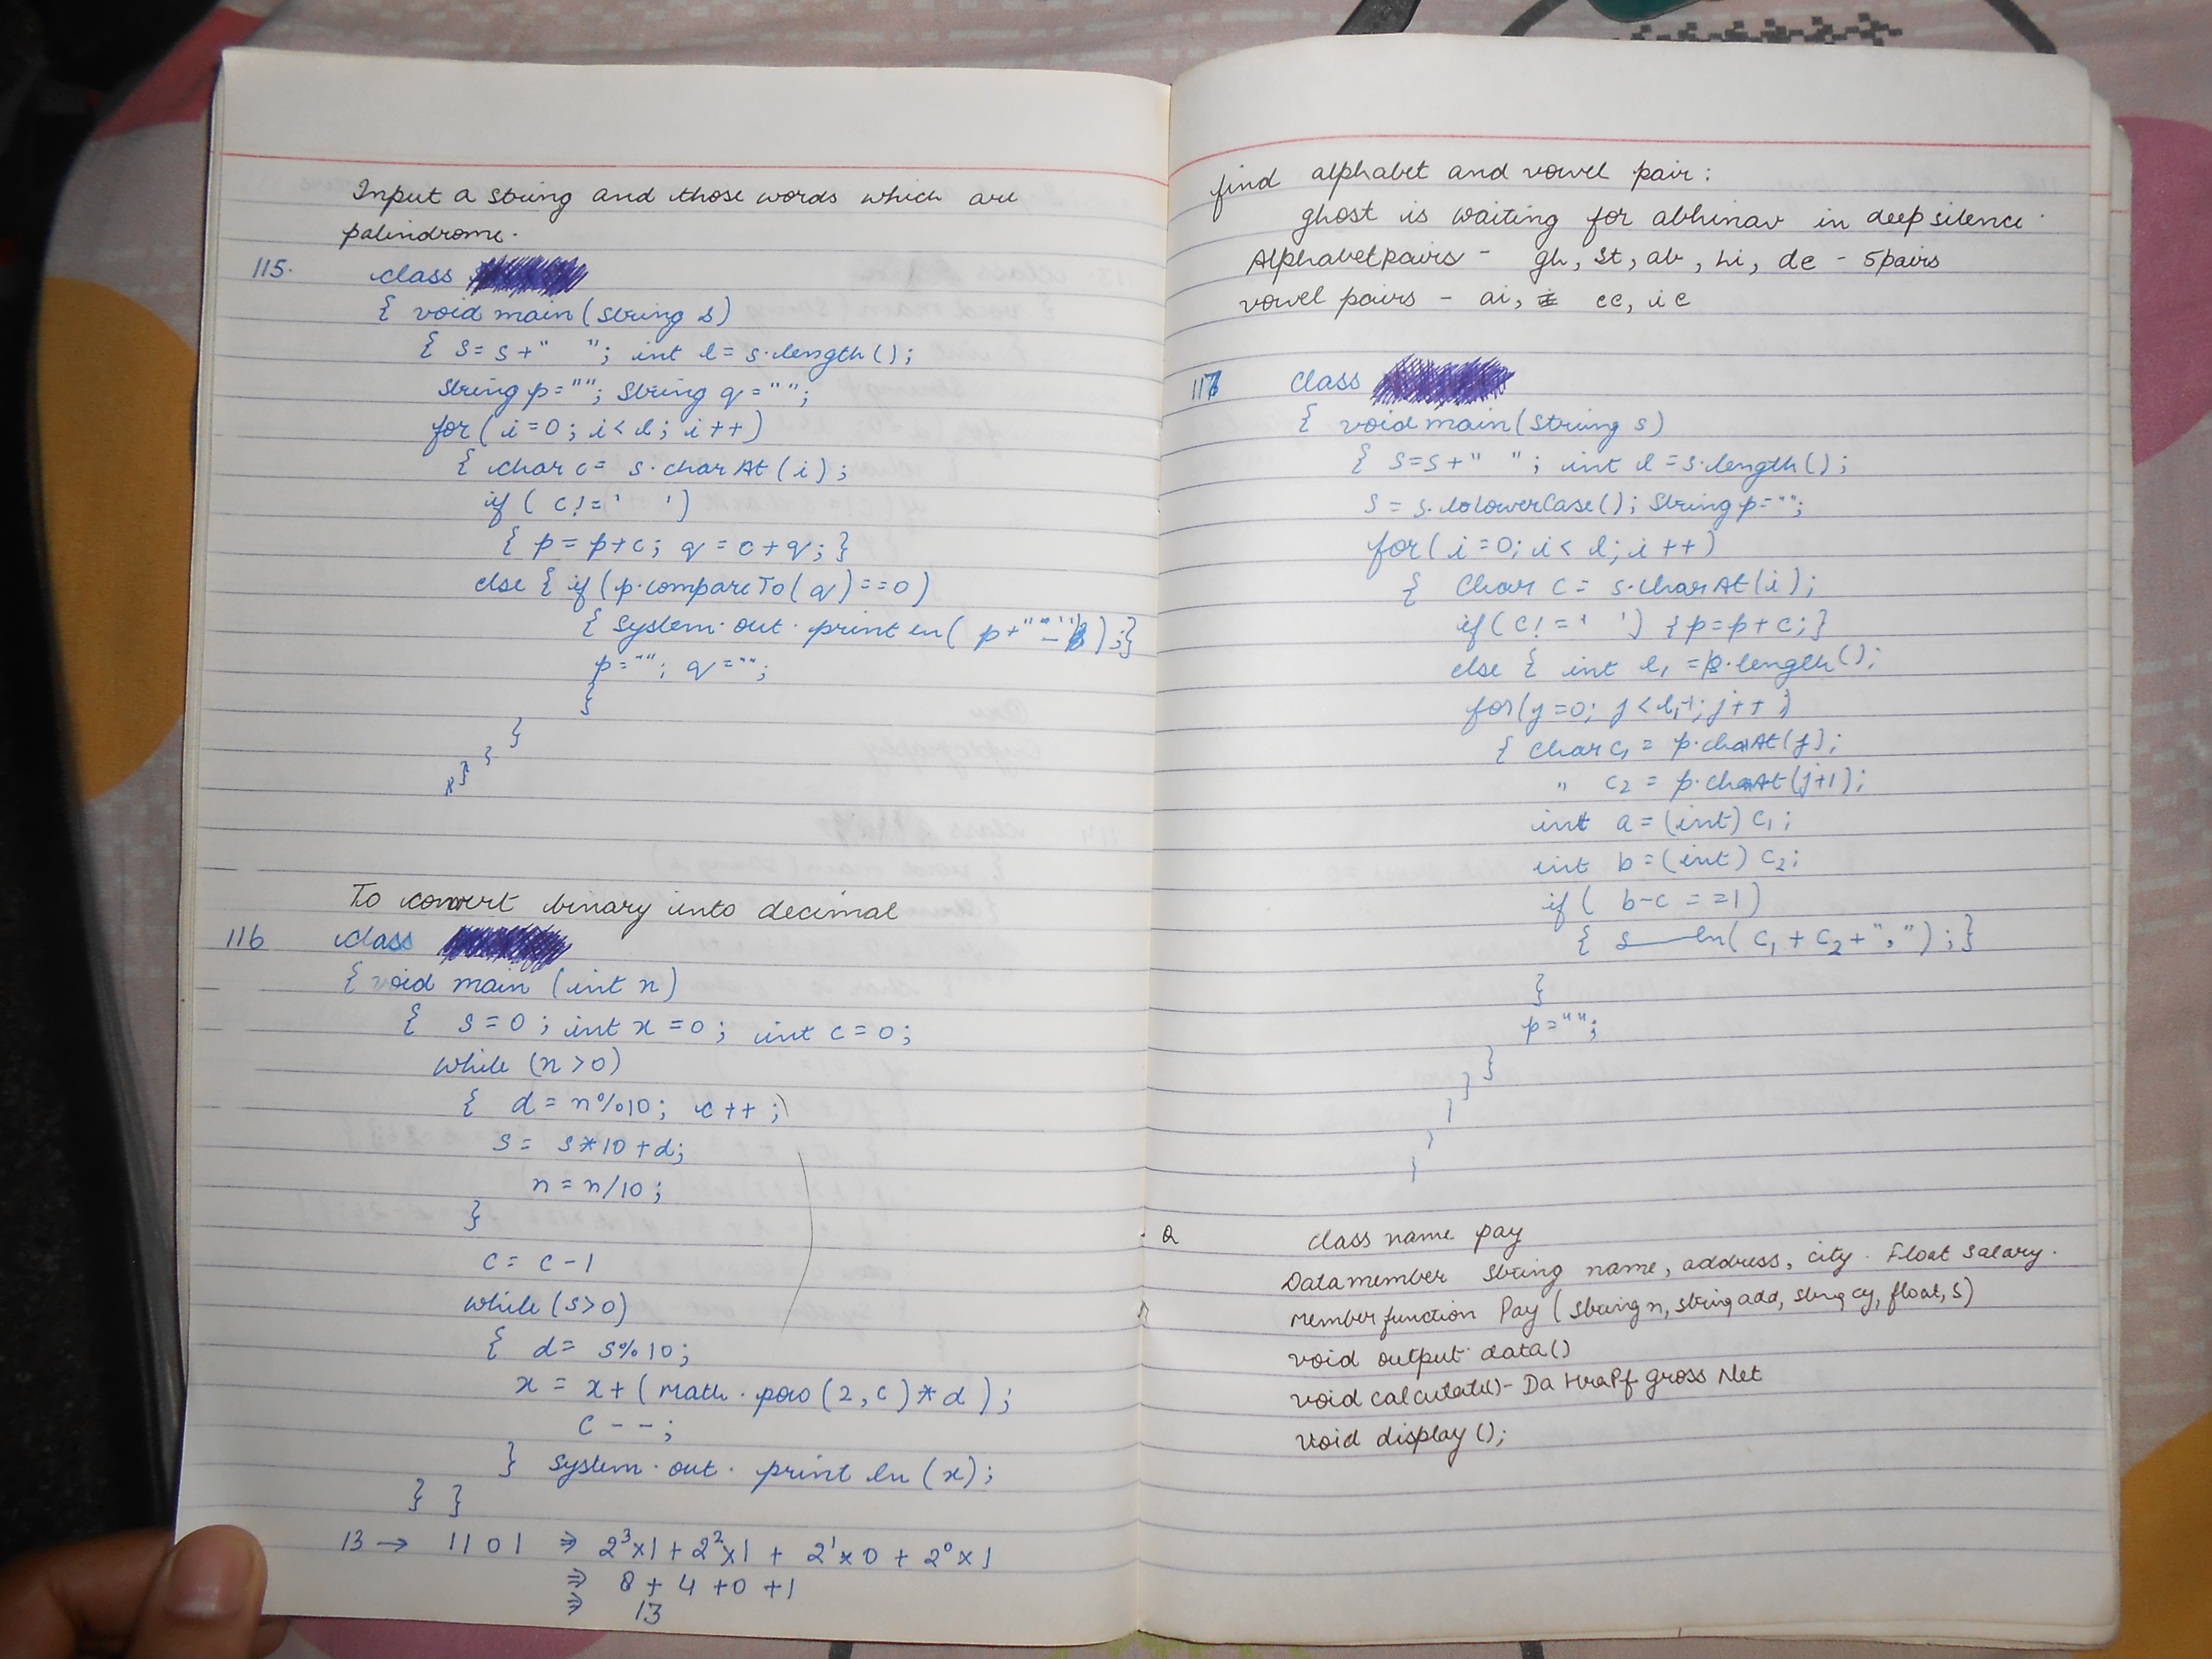 Input a string and those words which are
palindrome.
115. class
{ void main (String s)
{ s = s + " "; int l = s.length();
String p = ""; String q = "";
for( i=0; i<l; i++)
{ char c = s.charAt(i);
if ( c!=' ')
{ p = p+c; q = c+q; }
else { if (p.compareTo(q)==0)
{ System.out.println( p+" );}
p=""; q="";
}
}
}
}
}
To convert binary into decimal
116 class
{ void main (int n)
{ s=0; int x=0; int c=0;
while (n>0)
{ d = n%10; c++;
s = s*10+d;
n = n/10;
}
c = c-1
while (s>0)
{ d = s%10;
x = x+(Math.pow(2,c)*d);
c--;
} System.out.println(x);
} }
13 → 1101 ⇒ 2³x1 + 2²x1 + 2¹x0 + 2⁰x1
⇒ 8+4+0+1
⇒ 13
find alphabet and vowel pair:
ghost is waiting for abhinav in deep silence.
Alphabetpairs - gh, st, ab, hi, de - 5pairs
vowel pairs - ai, ee, ie
117 class
{ void main(String s)
{ s=s+" "; int l=s.length();
s = s.toLowerCase(); String p="";
for( i=0; i<l; i++)
{ Char c = s.charAt(i);
if(c!=' ') {p=p+c;}
else { int l₁ =p.length();
for(j=0; j<l₁-1; j++)
{ char c₁ = p.charAt(j);
" c₂ = p.charAt(j+1);
int a=(int) c₁;
int b=(int) c₂;
if( b-c ==1)
{ s——ln( c₁+c₂+","); }
}
p="";
}
}
}
}
}
Q class name pay
Datamember String name, address, city. Float salary.
Memberfunction Pay (String n, string add, string cy, float, s)
void output data()
void calculate()- Da Hra Pf gross Net
Void display();